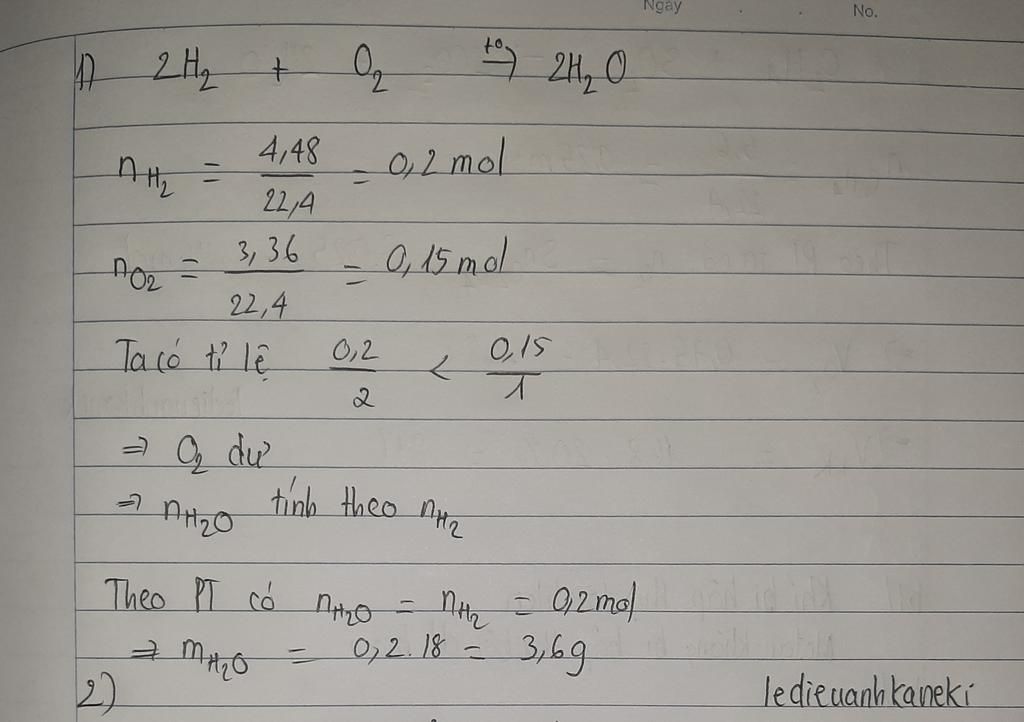 Ngày . . No.
1) 2H₂ + O₂ →(t°) 2H₂O
n_H₂ = 4,48/22,4 = 0,2 mol
n_O₂ = 3,36/22,4 = 0,15 mol
Ta có tỉ lệ 0,2/2 < 0,15/1
⇒ O₂ dư
⇒ n_H₂O tính theo n_H₂
Theo PT có n_H₂O = n_H₂ = 0,2 mol
⇒ m_H₂O = 0,2.18 = 3,6g
2) ledieuanhkaneki